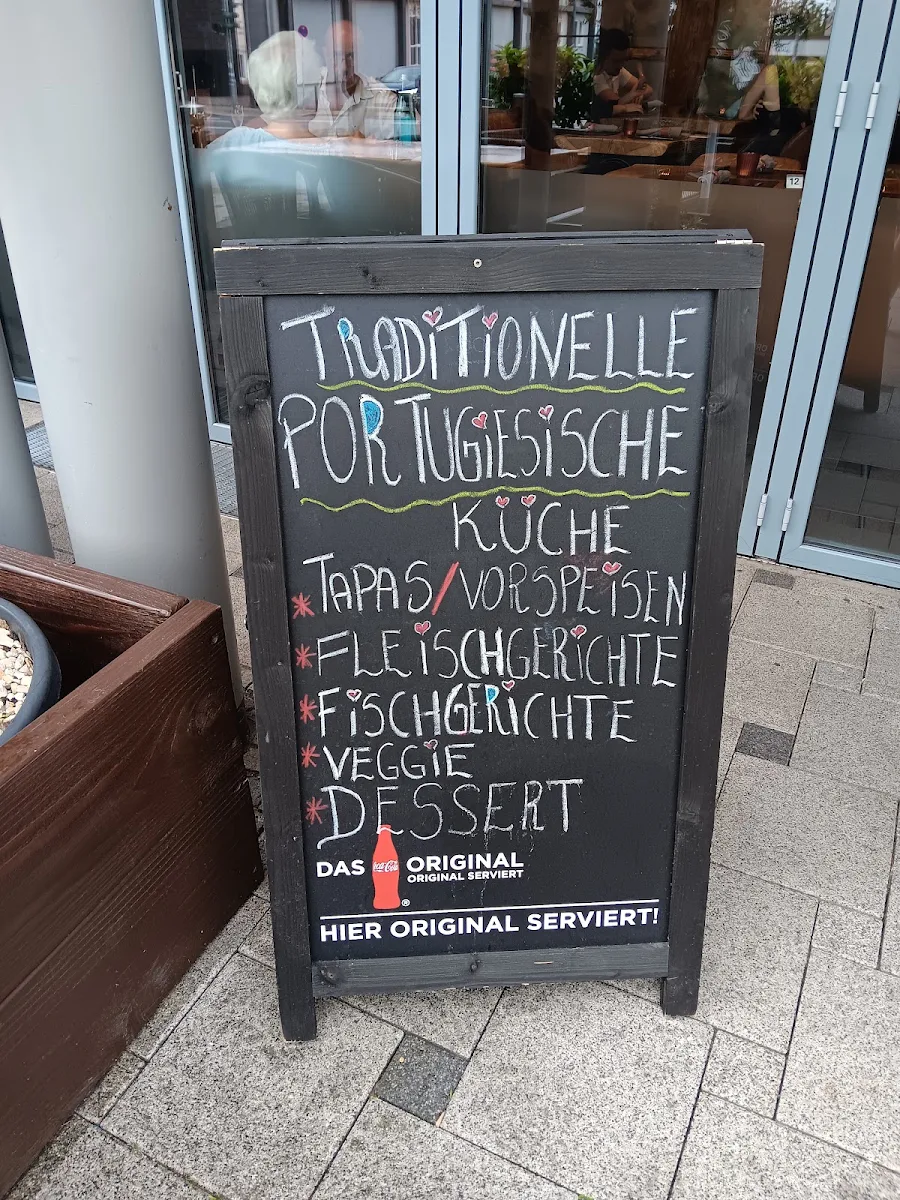 TRADITIONELLE
PORTUGIESISCHE
KÜCHE
* TAPAS/VORSPEISEN
* FLEISCHGERICHTE
* FISCHGERICHTE
* VEGGIE
* DESSERT
DAS Coca-Cola ® ORIGINAL
ORIGINAL SERVIERT
HIER ORIGINAL SERVIERT!
12